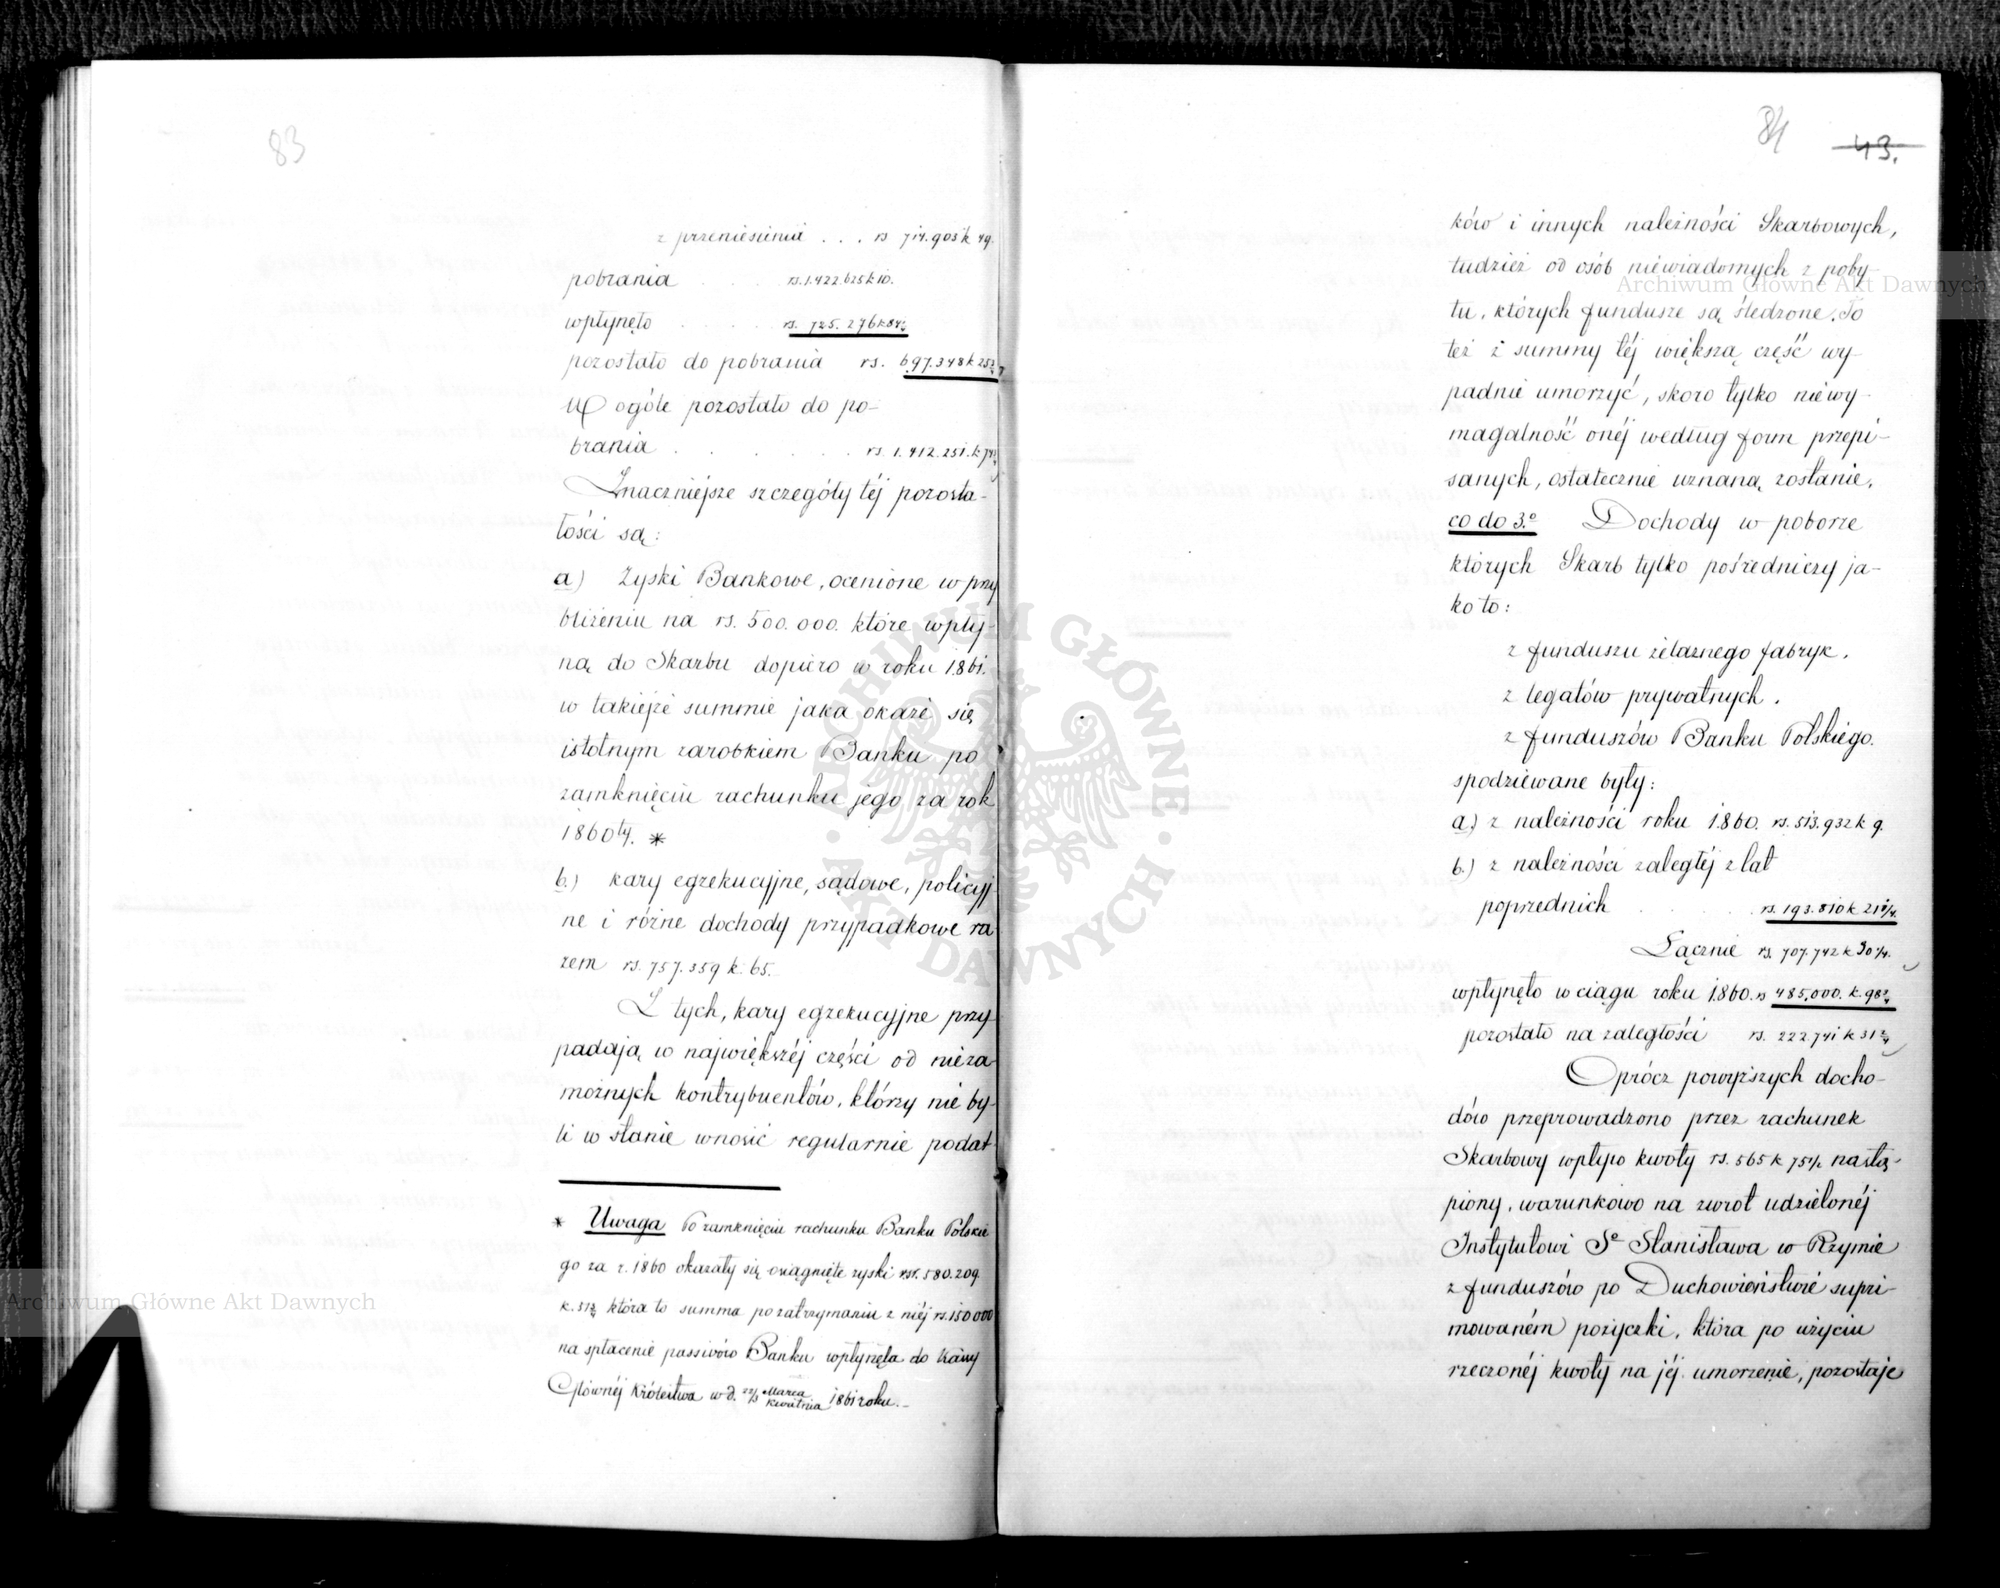 83
z przeniesienia . . . rs 714.903 k 49.
pobrania . . . . rs. 1.422.625 k 10.
wpłynęło . . . . rs. 725.276 k 84¾
pozostało do pobrania rs. 697.348 k 25¼
W ogóle pozostało do po-
brania . . . . . . rs. 1.412.251. k 74¼
Znaczniejsze szczegóły téj pozosta-
łości są:
a) Zyski Bankowe, ocenione w przy
bliżeniu na rs. 500.000. które wpły-
ną do Skarbu dopiero w roku 1861.
w takiejże summie jaka okaże się
istotnym zarobkiem Banku po
zamknięciu rachunku jego za rok
1860ty. *
b.) kary egzekucyjne, sądowe, policyj
ne i różne dochody przypadkowe ra
zem rs. 757.359 k. 65.
Z tych, kary egzekucyjne przy
padają w największéj części od nieza
możnych kontrybuentów, którzy nie by-
li w stanie wnosić regularnie podat
* Uwaga Po zamknięciu rachunku Banku Polskie
go za r. 1860 okazały się osiągnięte zyski rsr. 580.209.
k. 31¾ która to summa po zatrzymaniu z niéj rs. 150000
na spłacenie passivów Banku wpłynęła do Kassy
Głównéj Królestwa w d. 22/3 Marca/Kwietnia 1861 roku. –
84 43.
ków i innych należności Skarbowych,
tudzież od osób niewiadomych z poby-
tu, których fundusze są śledzone. To
też z summy téj większą część wy-
padnie umorzyć, skoro tylko niewy-
magalność onéj według form przepi-
sanych, ostatecznie uznaną zostanie.
co do 3.o Dochody w poborze
których Skarb tylko pośredniczy ja-
ko to:
z funduszu żelaznego fabryk.
z legatów prywatnych.
z funduszów Banku Polskiego.
spodziewane były:
a.) z należności roku 1860. rs. 513.932 k 9.
b.) z należności zaległéj z lat
poprzednich . . . . . rs. 193.810 k 21¼.
Łącznie rs. 707.742 k 30¼.
wpłynęło w ciągu roku 1860. rs 485.000. k. 98¾
pozostało na zaległości rs. 222.741 k 31¾
Oprócz powyższych docho-
dów przeprowadzono przez rachunek
Skarbowy wpływ kwoty rs. 565 k 75½ nastą-
piony, warunkowo na zwrot udzielonéj
Instytutowi So Stanisława w Rzymie
z funduszów po Duchowieństwie supri-
mowaném pożyczki, która po użyciu
rzeczonéj kwoty na jéj umorzenie, pozostaje
Archiwum Główne Akt Dawnych
Archiwum Główne Akt Dawnych
ARCHIWUM GŁÓWNE · AKT DAWNYCH ·